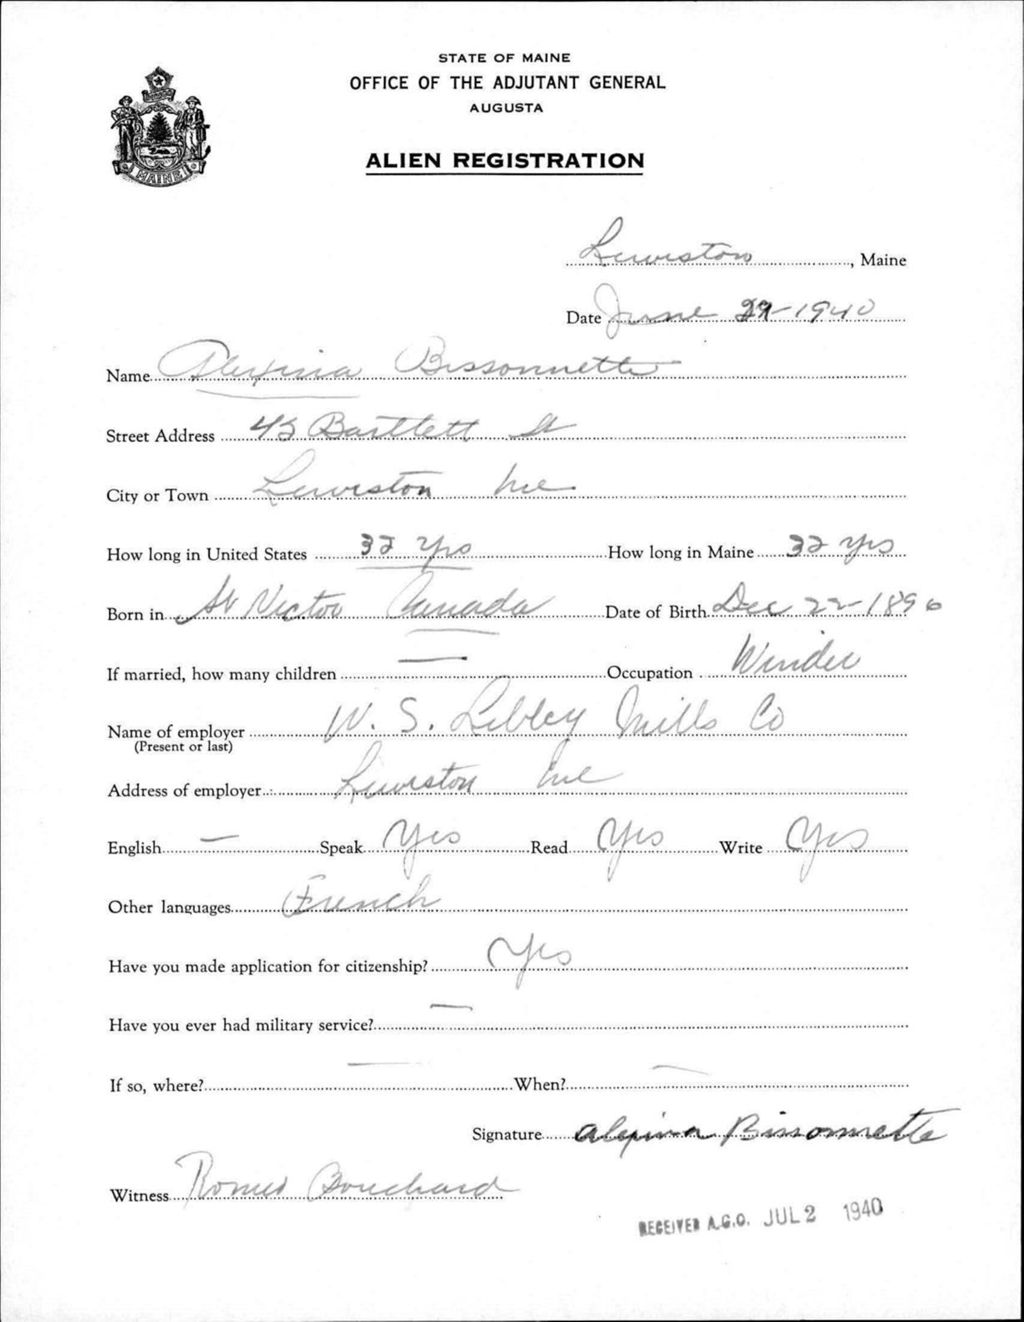 STATE OF MAINE
OFFICE OF THE ADJUTANT GENERAL
AUGUSTA
MAINE
ALIEN REGISTRATION
Lewiston, Maine
Date June 29-1940
Name Alexina Bissonnette
Street Address 43 Bartlett St
City or Town Lewiston Me
How long in United States 32 Yrs How long in Maine 32 Yrs
Born in St Victor Canada Date of Birth Dec 22-1896
If married, how many children — Occupation Winder
Name of employer W. S. Libbey Mills Co
(Present or last)
Address of employer Lewiston Me
English — Speak Yes Read Yes Write Yes
Other languages French
Have you made application for citizenship? Yes
Have you ever had military service? —
If so, where? — When? —
Signature Alexina Bissonnette
Witness Romeo Bouchard
RECEIVED A.G.O. JUL 2 1940